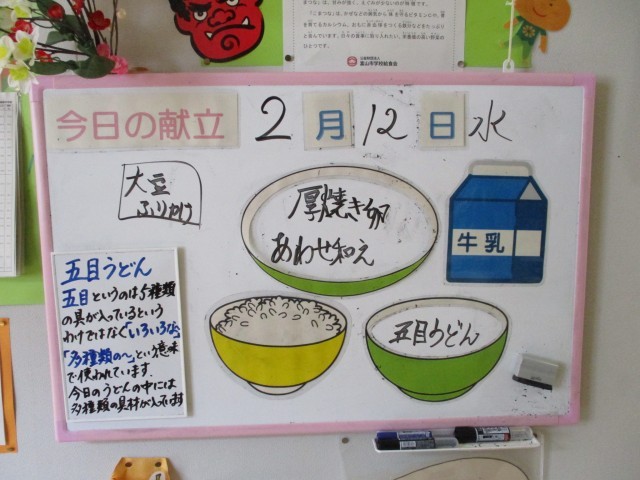 富山市学校給食会
今日の献立 2月12日水
大豆
ふりかけ
厚焼き卵
あわせ和え
牛乳
五目うどん
五目うどん
五目というのは5種類
の具が入っているという
わけではなく「いろいろな」
「多種類の〜」という意味
で使われています。
今日のうどんの中には
多種類の具材が入っています